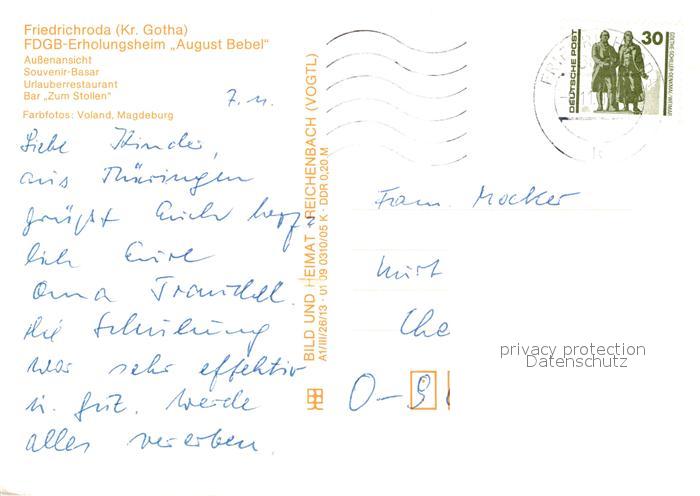 Friedrichroda (Kr. Gotha)
FDGB-Erholungsheim „August Bebel"
Außenansicht
Souvenir-Basar
Urlauberrestaurant
Bar „Zum Stollen"
Farbfotos: Voland, Magdeburg
7. 11.
Liebe Kinder,
aus Thüringen
grüßt Euch herz-
lich Eure
Oma Traudel.
die Schulung
war sehr effektiv
u. gut. werde
alles vererben.
BILD UND HEIMAT REICHENBACH (VOGTL)
A1/III/26/13 · 01 09 0310/05 K · DDR 0,20 M
DEUTSCHE POST
30
Fam. Mocker
Kurt
Che
O-9
privacy protection
Datenschutz